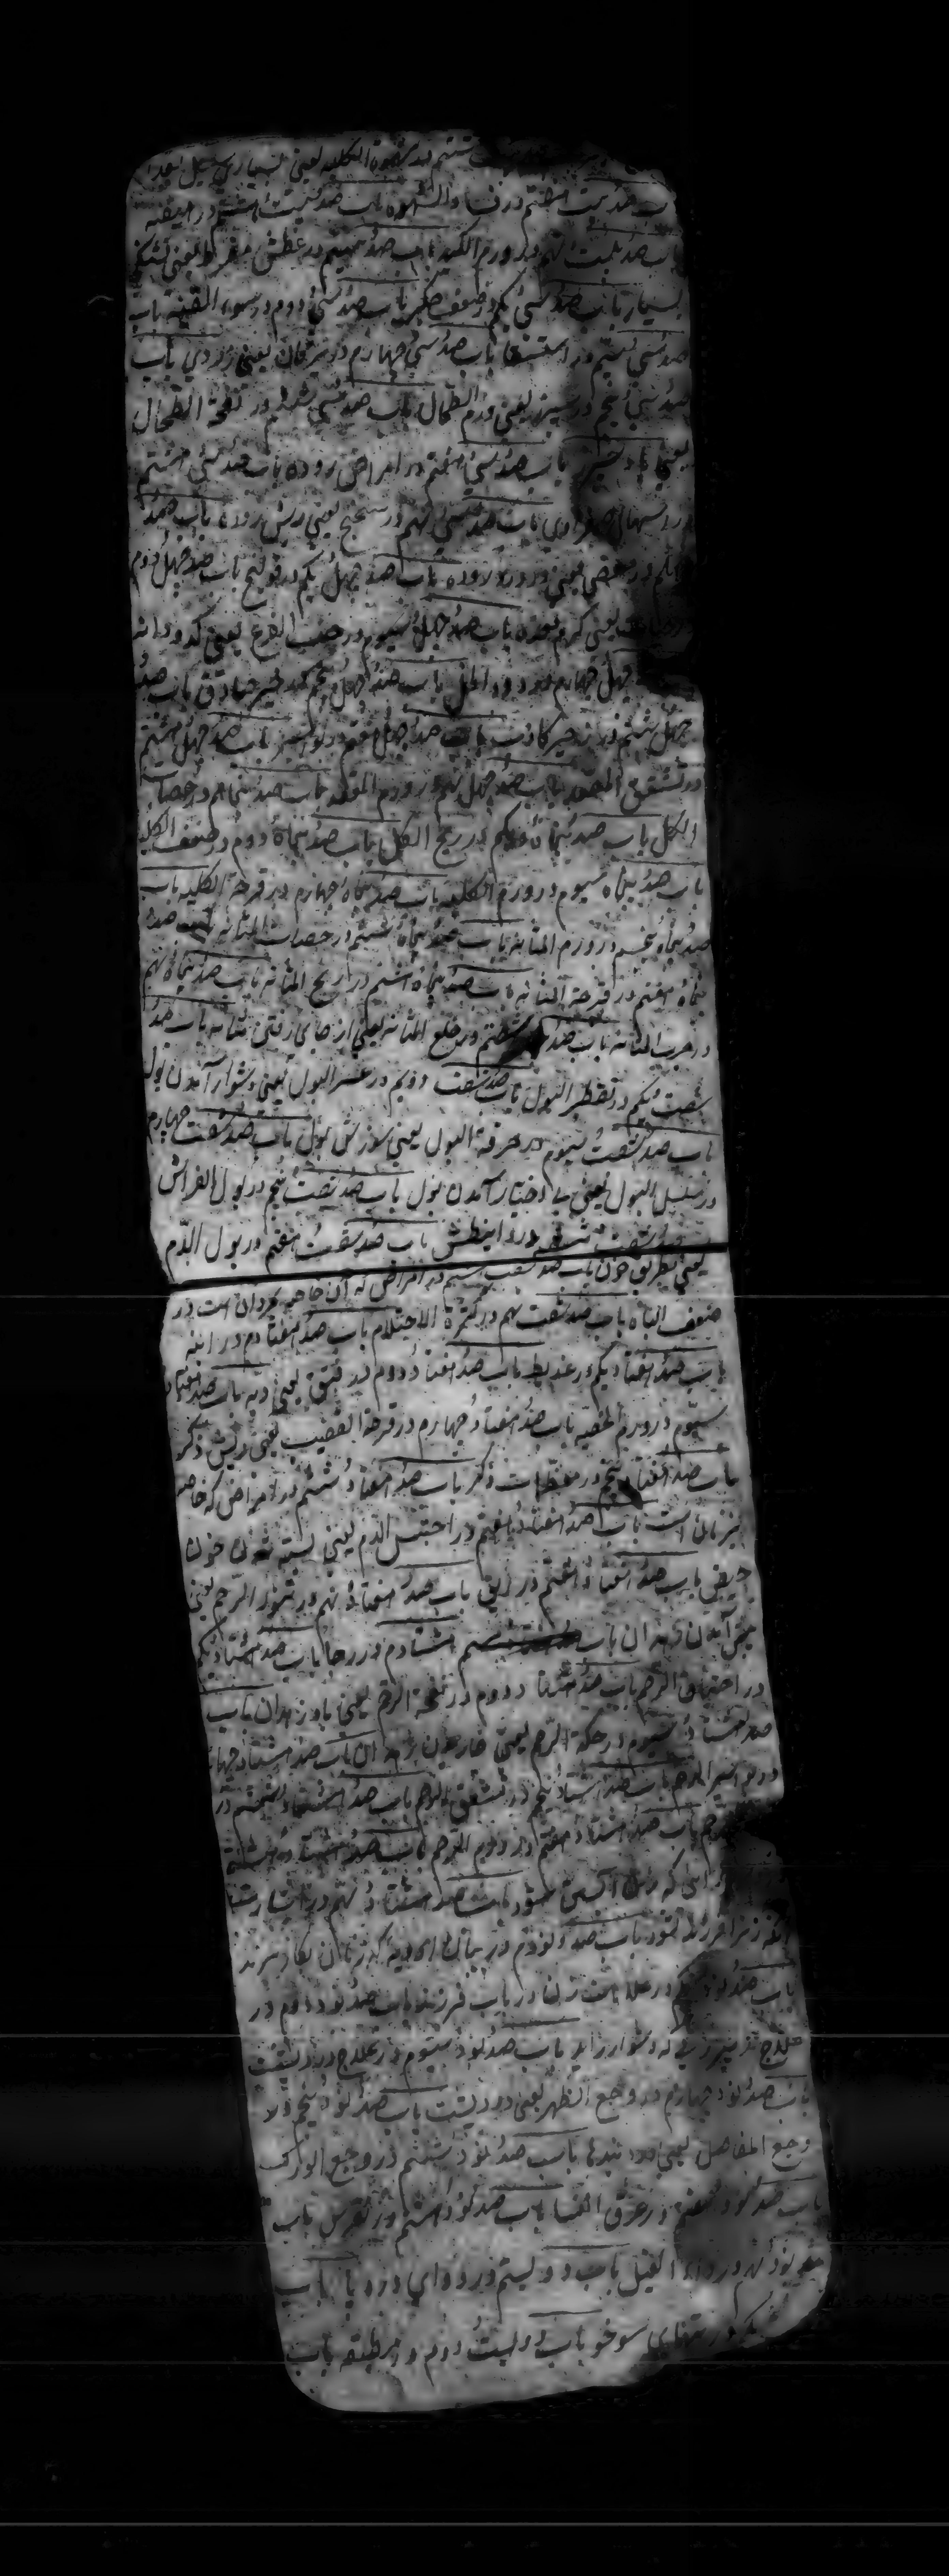 ششم در شهوة الکلبیه یعنی بسیاری میل غذا
باب صد بیست هفتم در فساد الشهوه باب صد بیست هشتم در هیضه
باب صد بیست نهم در ورم الکبد باب صد سیم در عطش مفرط یعنی تشنگی
بسیار باب صد سی یکم در ضعف جگر باب صد سی دوم در سوء القنیه باب
صد سی سیم در استسقا باب صد سی چهارم در یرقان یعنی زردی باب
صد سی پنجم در سپرز یعنی ورم الطحال باب صد سی ششم در نفخة الطحال
یعنی باد سپرز باب صد سی هفتم در امراض روده باب صد سی هشتم
در اسهال صفراوی باب صد سی نهم در سحج یعنی ریش روده باب صد
چهلم در مغص یعنی درد روده باب صد چهل یکم در قولنج باب صد چهل دوم
یعنی کرم معده باب صد چهل سیوم در حب القرع یعنی کدو دانه
چهل چهارم در دود الخل باب صد چهل پنجم در زحیر صادق باب صد
چهل ششم در زحیر کاذب باب صد چهل هفتم در بواسیر باب صد چهل هشتم
در شقوق المقعد باب صد چهل نهم در ورم المقعد باب صد پنجاهم در حصات
الکلی باب صد پنجاه یکم در ریح الکلی باب صد پنجاه دوم در ضعف الکلیه
باب صد پنجاه سیوم در ورم الکلیه باب صد پنجاه چهارم در قرحة الکلیه باب
صد پنجاه پنجم در ورم المثانه باب صد پنجاه ششم در حصات المثانه باب صد
پنجاه هفتم در قرحة المثانه باب صد پنجاه هشتم در ریح المثانه باب صد پنجاه نهم
در جرب المثانه باب صد شصتم در خلع المثانه یعنی از جای رفتن مثانه باب صد
شصت یکم در تقطیر البول باب صد شصت دویم در عسر البول یعنی دشوار آمدن بول
باب صد شصت سیوم در حرقة البول یعنی سوزش بول باب صد شصت چهارم
در سلسل البول یعنی بی اختیار آمدن بول باب صد شصت پنجم در بول الفراش
صد شصت ششم در باب صد شصت هفتم در بول الدم
یعنی بطریق خون باب صد شصت هشتم در امراض که آن خاصه مردان است در
ضعف الباه باب صد شصت نهم در کثرة الاحتلام باب صد هفتادم در ابنه
باب صد هفتاد یکم در عذیط باب صد هفتاد دوم در فتق یعنی دبه باب صد هفتاد
سیوم در ورم الخصیه باب صد هفتاد چهارم در قرحة القضیب یعنی ریش ذکر
باب صد هفتاد پنجم در معظمات ذکر باب صد هفتاد ششم در امراض که خاصه
بزنان است باب صد هفتاد هفتم در احتبس الدم یعنی بسته شدن خون
حیض باب صد هفتاد هشتم در نزیف باب صد هفتاد نهم در نتوز الرحم یعنی
پیش آمدن زهدان باب هشتادم در رجا باب صد هشتاد یکم
در اختناق الرحم باب صد هشتاد دوم در نفخة الرحم یعنی باد زهدان باب
صد هشتاد سیوم در حکة الرحم یعنی خاریدن زهدان باب صد هشتاد چهارم
در بواسیر الرحم باب صد هشتاد پنجم در شقق الرحم باب صد هشتاد ششم در
رحم باب صد هشتاد هفتم در ورم الرحم باب صد هشتاد هشتم
که زن آبستن شود باب صد هشتاد نهم در
آنکه زنرا فرزند نشود باب صد نودم در بیان ادویه که زنان بکار برند
باب صد نود یکم در علامت زنان در باب فرزند باب صد نود دوم در
علاج که دشوار زاید باب صد نود سیوم در علاج درد پشت
باب صد نود چهارم در وجع الظهر یعنی درد پشت باب صد نود پنجم در
وجع المفاصل یعنی درد بندها باب صد نود ششم در وجع الورک
باب صد نود هفتم در عرق النسا باب صد نود هشتم در نقرس باب
صد نود نهم در داء الفیل باب دویستم در دوای درد پا باب
یکم در سوختن باب دویست دوم در باب